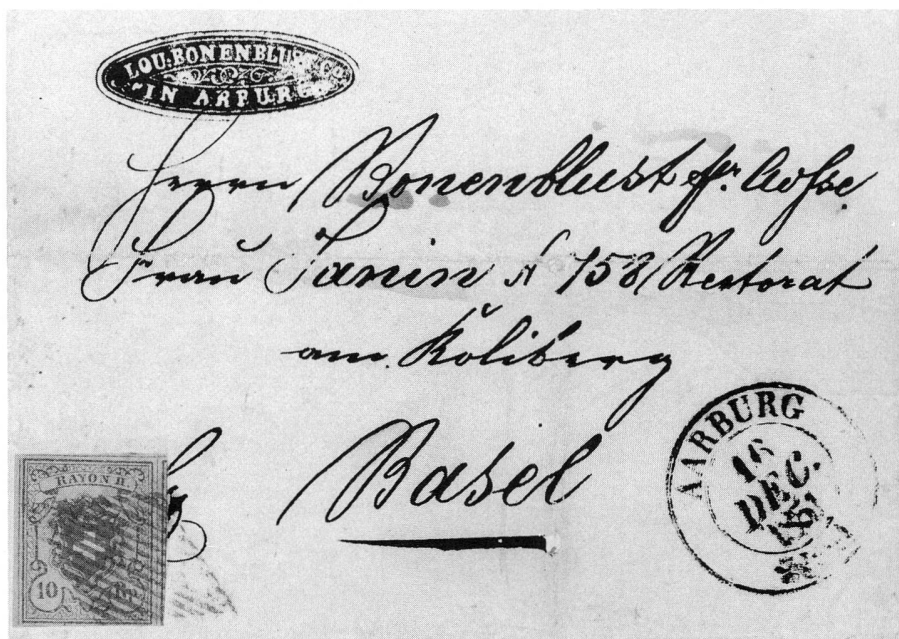 LOU: BONENBLUST & CO:
IN ARBURG
Herrn Bonenblust
Frau Fanin № 758 Rectorat
am Koliberg
Basel
AARBURG
16
DEC.
RAYON II.
10 Rp.